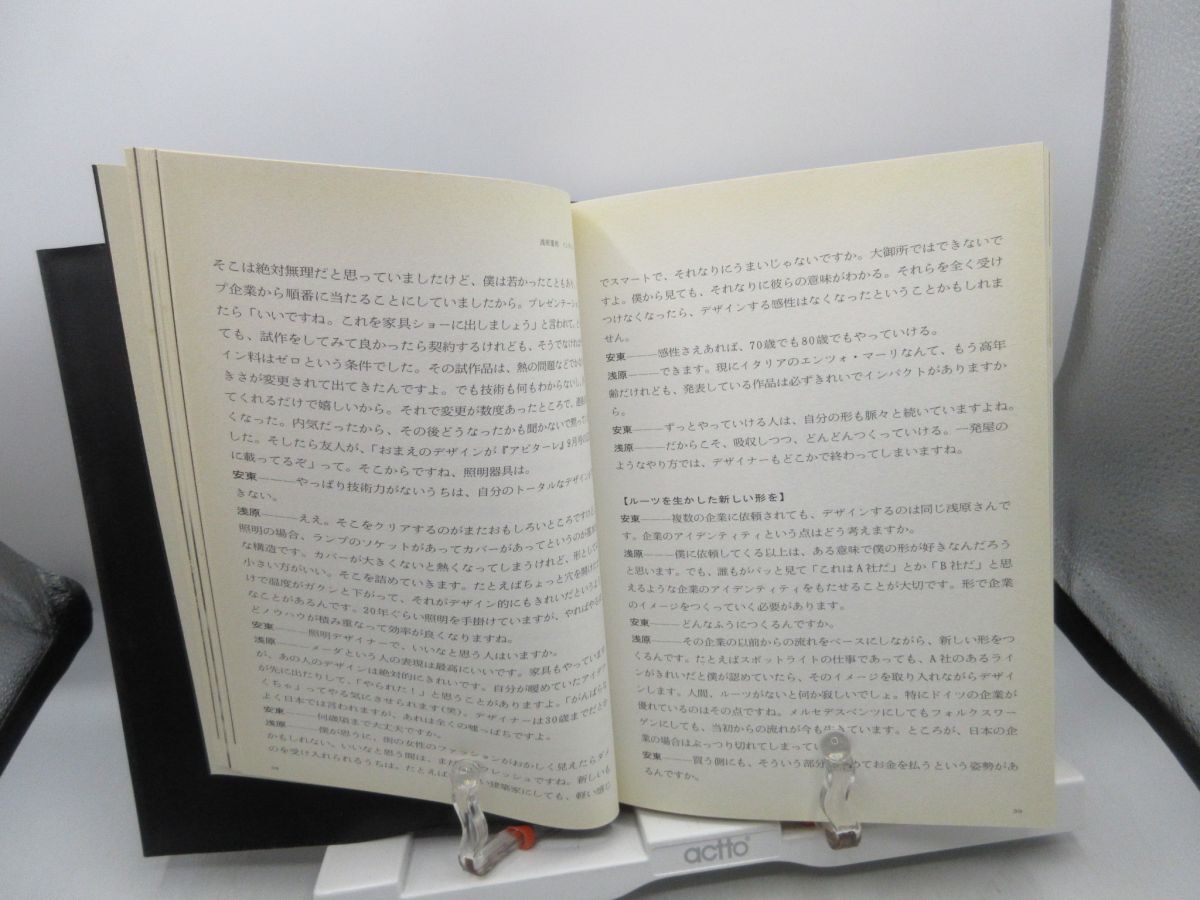 そこは絶対無理だと思っていましたけど、僕は若かったこともあり、
プ企業から順番に当たることにしていましたから。プレゼンテーショ
たら「いいですね。これを家具ショーに出しましょう」と言われて。
ても、試作をしてみて良かったら契約するけれども、そうでなければ
イン料はゼロという条件でした。その試作品は、熱の問題などで
きさが変更されて出てきたんですよ。でも技術も何もわからないし、
てくれるだけで嬉しいから。それで変更が数度あったところで、連絡
くなった。内気だったから、その後どうなったかも聞かないで黙って
した。そしたら友人が、「おまえのデザインが『アビターレ』9月号の
に載ってるぞ」って。そこからですね、照明器具は。
安東――やっぱり技術力がないうちは、自分のトータルなデザインが
きない。
浅原――ええ。そこをクリアするのがまたおもしろいところですけど
照明の場合、ランプのソケットがあってカバーがあってというのが基本
な構造です。カバーが大きくないと熱くなってしまうけれど、形として
小さい方がいい。そこを詰めていきます。たとえばちょっと穴を開けただ
けで温度がガクンと下がって、それがデザイン的にもきれいだというよう
なことがあるんです。20年ぐらい照明を手掛けていますが、やればやるほ
どノウハウが積み重なって効率が良くなりますね。
安東――照明デザイナーで、いいなと思う人はいますか。
浅原――メーダという人の表現は最高にいいです。家具もやっています
が、あの人のデザインは絶対的にきれいです。自分が暖めていたアイデア
が先に出たりして、「やられた!」と思うことがありますよ。「がんばらな
くちゃ」ってやる気にさせられます(笑)。デザイナーは30歳までだとか
よく日本では言われますが、あれは全くの嘘っぱちですよ。
安東――何歳頃まで大丈夫ですか。
浅原――僕が思うに、街の女性のファッションがおかしく見えたらダメ
かもしれない。いいなと思う間は、まだ フレッシュですね。新しいも
のを受け入れられるうちは。たとえば 建築家にしても、軽い感じ
でスマートで、それなりにうまいじゃないですか。大御所ではできないで
すよ。僕から見ても、それなりに彼らの意味がわかる。それらを全く受け
つけなくなったら、デザインする感性はなくなったということかもしれま
せん。
安東――感性さえあれば、70歳でも80歳でもやっていける。
浅原――できます。現にイタリアのエンツォ・マーリなんて、もう高年
齢だけれども、発表している作品は必ずきれいでインパクトがありますか
ら。
安東――ずっとやっていける人は、自分の形も脈々と続いていますよね。
浅原――だからこそ、吸収しつつ、どんどんつくっていける。一発屋の
ようなやり方では、デザイナーもどこかで終わってしまいますね。
【ルーツを生かした新しい形を】
安東――複数の企業に依頼されても、デザインするのは同じ浅原さんで
す。企業のアイデンティティという点はどう考えますか。
浅原――僕に依頼してくる以上は、ある意味で僕の形が好きなんだろう
と思います。でも、誰もがパッと見て「これはA社だ」とか「B社だ」と思
えるような企業のアイデンティティをもたせることが大切です。形で企業
のイメージをつくっていく必要があります。
安東――どんなふうにつくるんですか。
浅原――その企業の以前からの流れをベースにしながら、新しい形をつ
くるんです。たとえばスポットライトの仕事であっても、A社のあるライ
ンがきれいだと僕が認めていたら、そのイメージを取り入れながらデザイ
ンします。人間、ルーツがないと何か寂しいでしょ。特にドイツの企業が
優れているのはその点ですね。メルセデスベンツにしてもフォルクスワー
ゲンにしても、当初からの流れが今も生きています。ところが、日本の企
業の場合はぶっつり切れてしまってい
安東――買う側にも、そういう部分 めてお金を払うという姿勢があ
るんですか。
actto